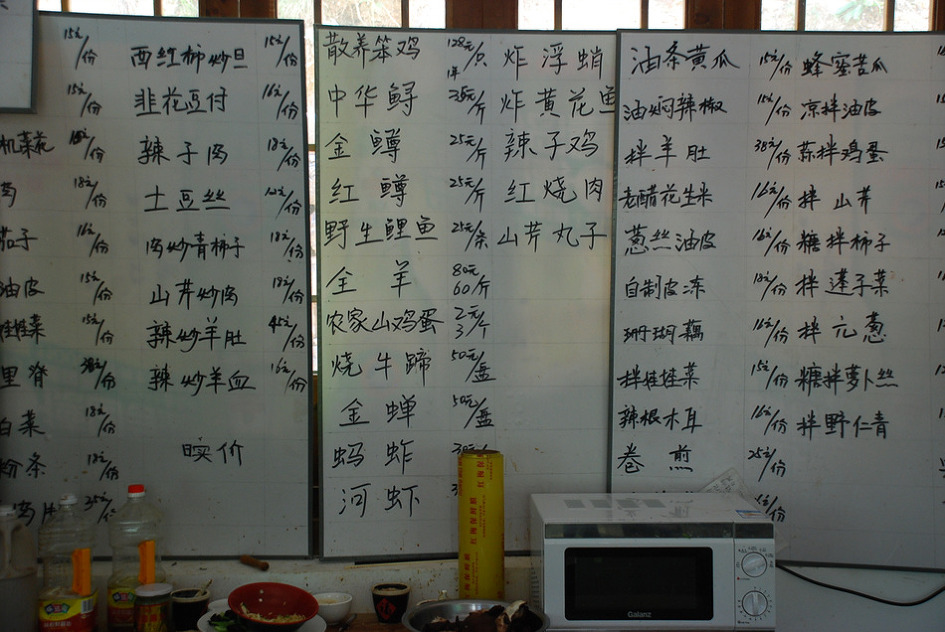 15元/份 西红柿炒旦 15元/份
15元/份 韭花豆付 16元/份
机菜花 辣子肉 18元/份
18元/份 土豆丝 12元/份
茄子 16元/份 肉炒青柿子 18元/份
油皮 15元/份 山芹炒肉 18元/份
娃娃菜 15元/份 辣炒羊肚 45元/份
里脊 38元/份 辣炒羊血 16元/份
白菜 18元/份
粉条 18元/份 价
散养笨鸡 128元/只 炸浮蛸
中华鲟 35元/斤 炸黄花鱼
金鳟 25元/斤 辣子鸡
红鳟 25元/斤 红烧肉
野生鲤鱼 山芹丸子
全羊 80元 60/斤
农家山鸡蛋 2元 3/个
烧牛蹄 50元/盘
金蝉 50元/盘
蚂蚱
河虾
油条黄瓜 15元/份 蜂蜜苦瓜
油焖辣椒 16元/份 凉拌油皮
拌羊肚 38元/份 蒜拌鸡蛋
老醋花生米 16元/份 拌山芹
葱丝油皮 16元/份 糖拌柿子
自制皮冻 18元/份 拌蓬子菜
珊瑚藕 16元/份 拌元葱
拌娃娃菜 15元/份 糖拌萝卜丝
辣根木耳 16元/份 拌野仁青
卷煎 25元/份
Galanz